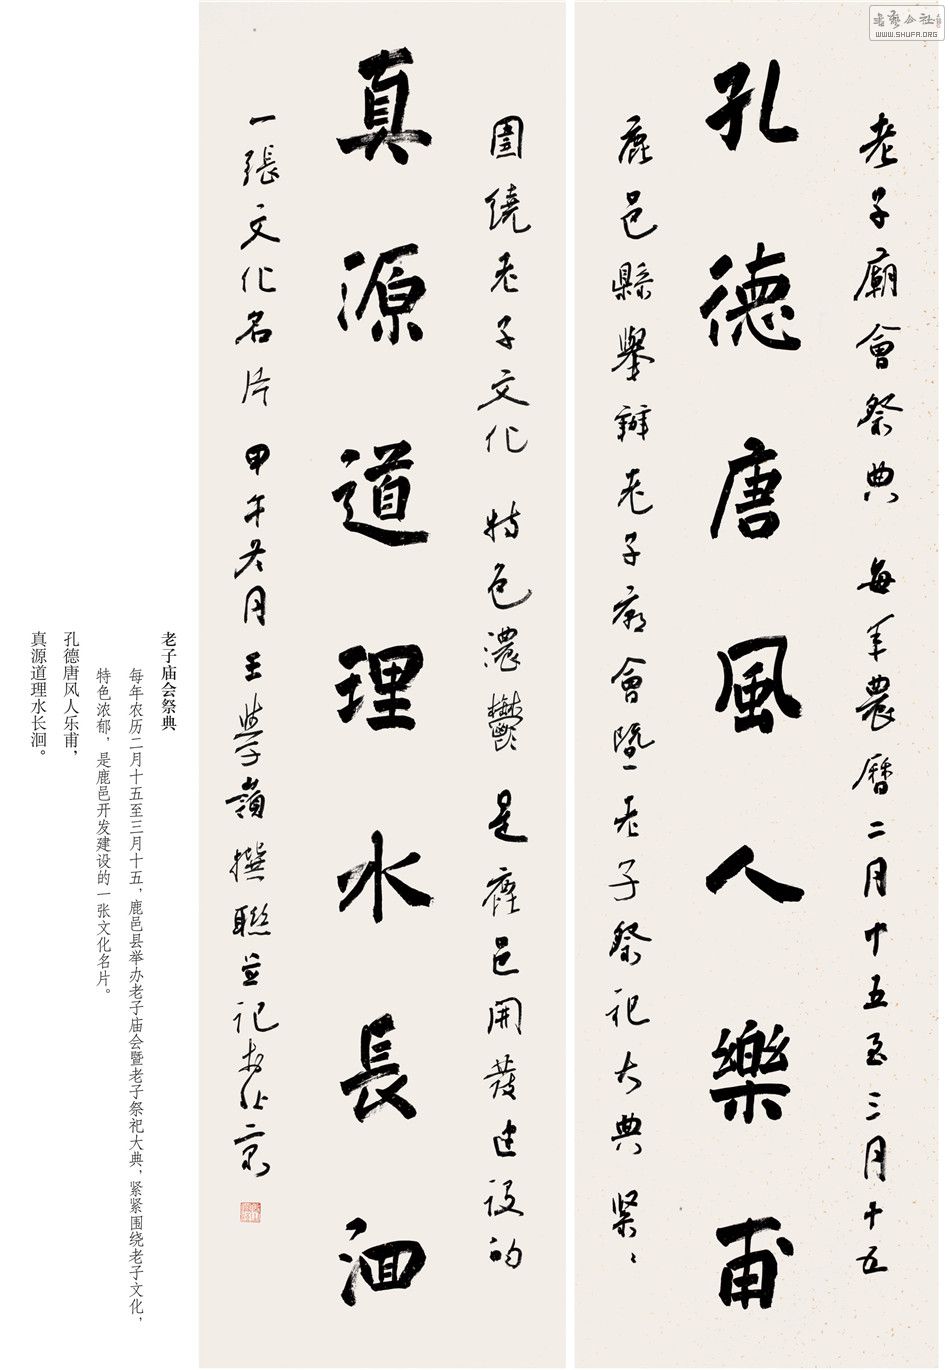 老子廟會祭典 每年農曆二月十五至三月十五
孔德唐風人樂甫
鹿邑縣舉辦老子廟會暨老子祭祀大典 緊〻
圍繞老子文化 特色濃鬱 是鹿邑開發建設的
真源道理水長洄
一張文化名片 甲午冬月王學嶺撰聯並記於北京
老子庙会祭典
每年农历二月十五至三月十五，鹿邑县举办老子庙会暨老子祭祀大典，紧紧围绕老子文化，
特色浓郁，是鹿邑开发建设的一张文化名片。
孔德唐风人乐甫，
真源道理水长洄。
書藝公社
WWW.SHUFA.ORG